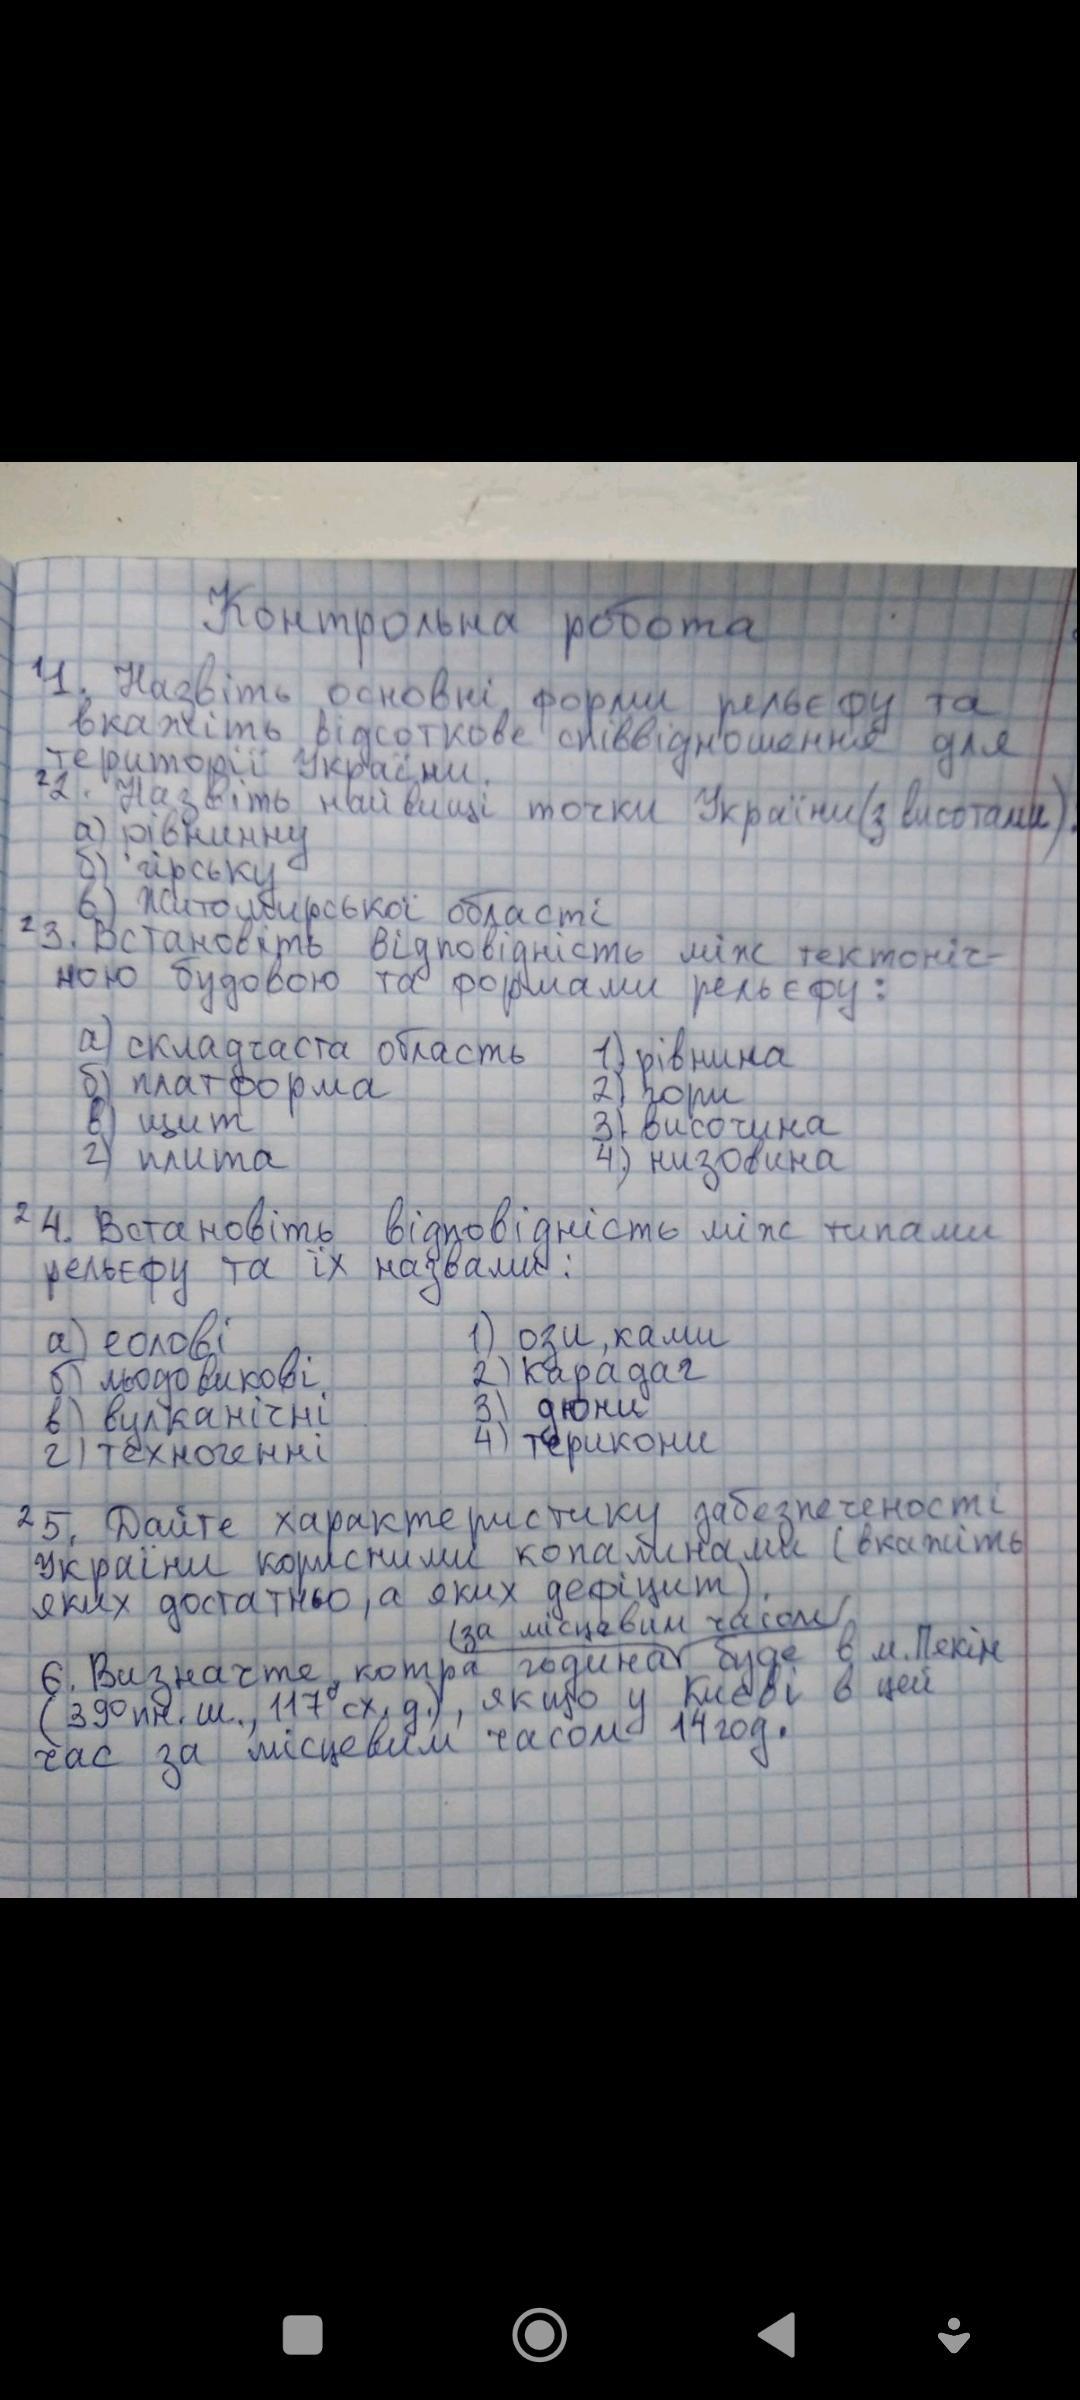 Контрольна робота
¹1. Назвіть основні форми рельєфу та
вкажіть відсоткове співвідношення для
території України.
²2. Назвіть найвищі точки України (з висотами):
а) рівнинну
б) гірську
в) Житомирської області
²3. Встановіть відповідність між тектоніч-
ною будовою та формами рельєфу:
а) складчаста область 1) рівнина
б) платформа 2) гори
в) щит 3) височина
г) плита 4) низовина
²4. Встановіть відповідність між типами
рельєфу та їх назвами:
а) еолові 1) ози, ками
б) льодовикові 2) Карадаг
в) вулканічні 3) дюни
г) техногенні 4) терикони
²5. Дайте характеристику забезпеченості
України корисними копалинами (вкажіть
яких достатньо, а яких дефіцит).
(за місцевим часом)
6. Визначте, котра година буде в м. Пекін
(39° пн. ш., 117° сх. д.), якщо у Києві в цей
час за місцевим часом 14 год.